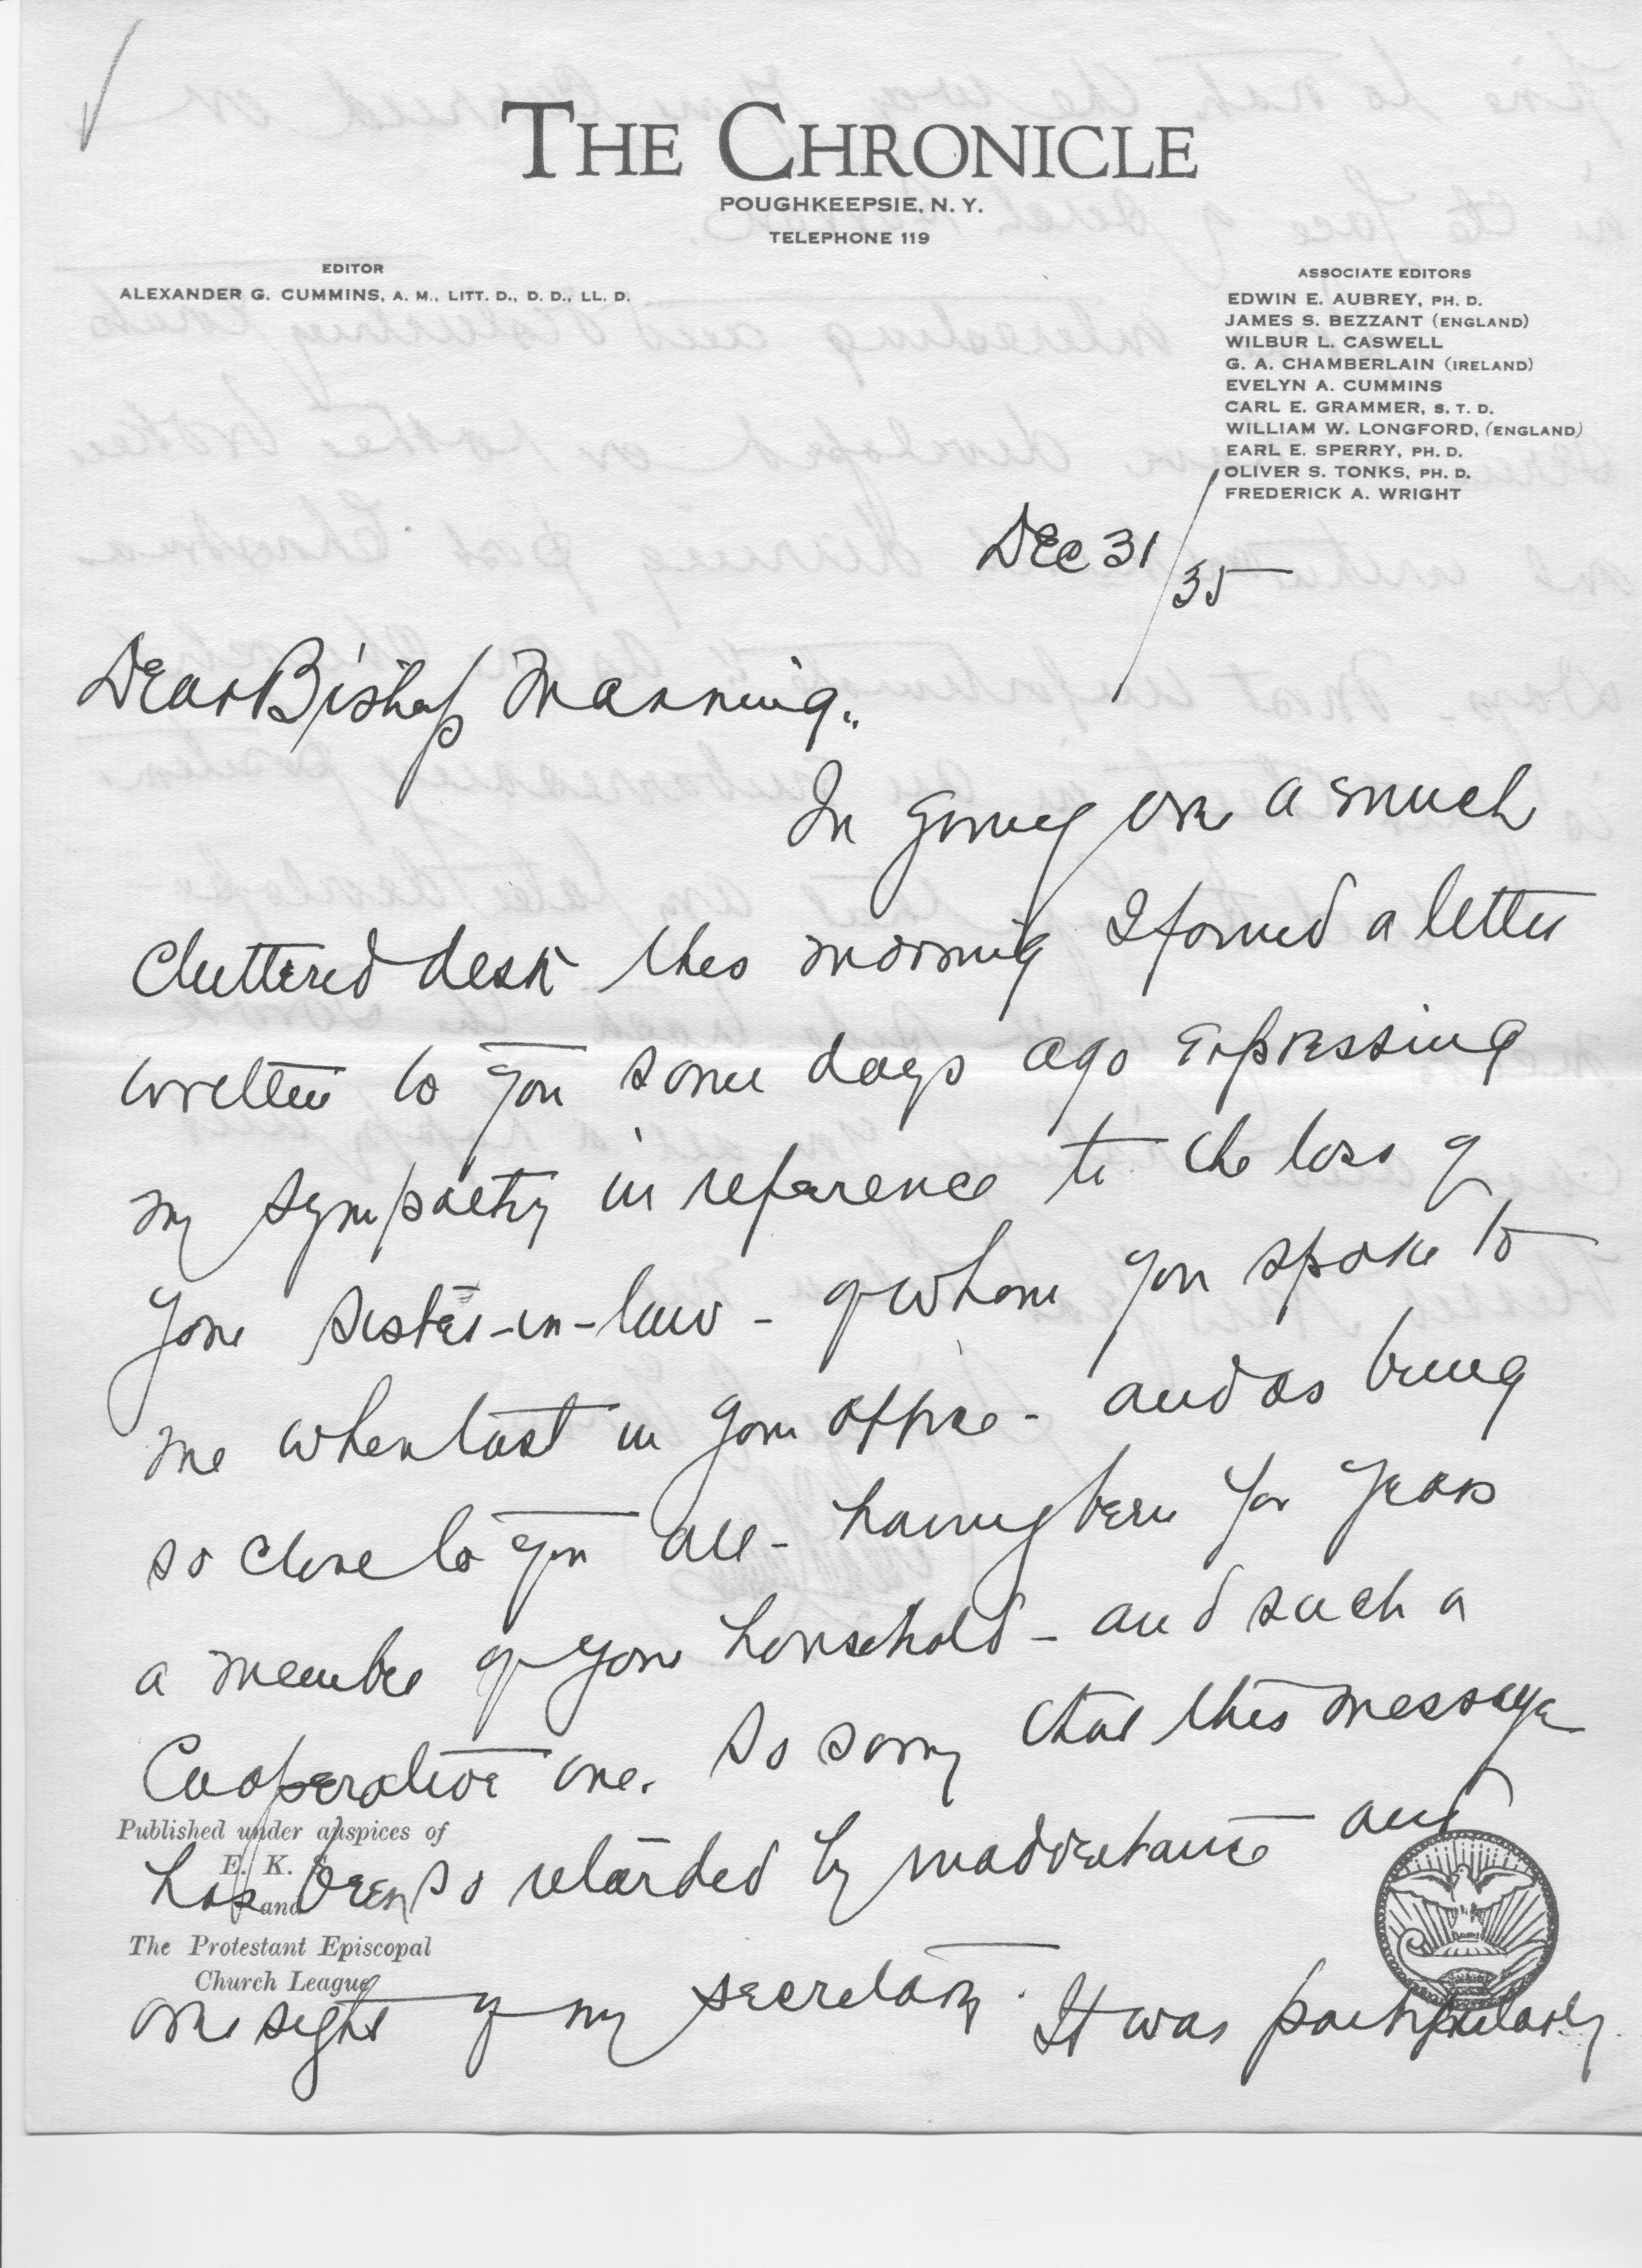 THE CHRONICLE
POUGHKEEPSIE, N. Y.
TELEPHONE 119
EDITOR
ALEXANDER G. CUMMINS, A. M., LITT. D., D. D., LL. D.
ASSOCIATE EDITORS
EDWIN E. AUBREY, PH. D.
JAMES S. BEZZANT (ENGLAND)
WILBUR L. CASWELL
G. A. CHAMBERLAIN (IRELAND)
EVELYN A. CUMMINS
CARL E. GRAMMER, S. T. D.
WILLIAM W. LONGFORD, (ENGLAND)
EARL E. SPERRY, PH. D.
OLIVER S. TONKS, PH. D.
FREDERICK A. WRIGHT
Dec 31/35
Dear Bishop Manning..
In going over a much
cluttered desk this morning I found a letter
written to you some days ago expressing
my sympathy in reference to the loss of
your sister-in-law - of whom you spoke to
me when last in your office - and as being
so close to you all - having been for years
a member of your household - and such a
Cooperative one. So sorry that this message
has been so retarded by inadvertance and
oversight of my secretary. It was particularly
Published under auspices of
E. K.
and
The Protestant Episcopal
Church League